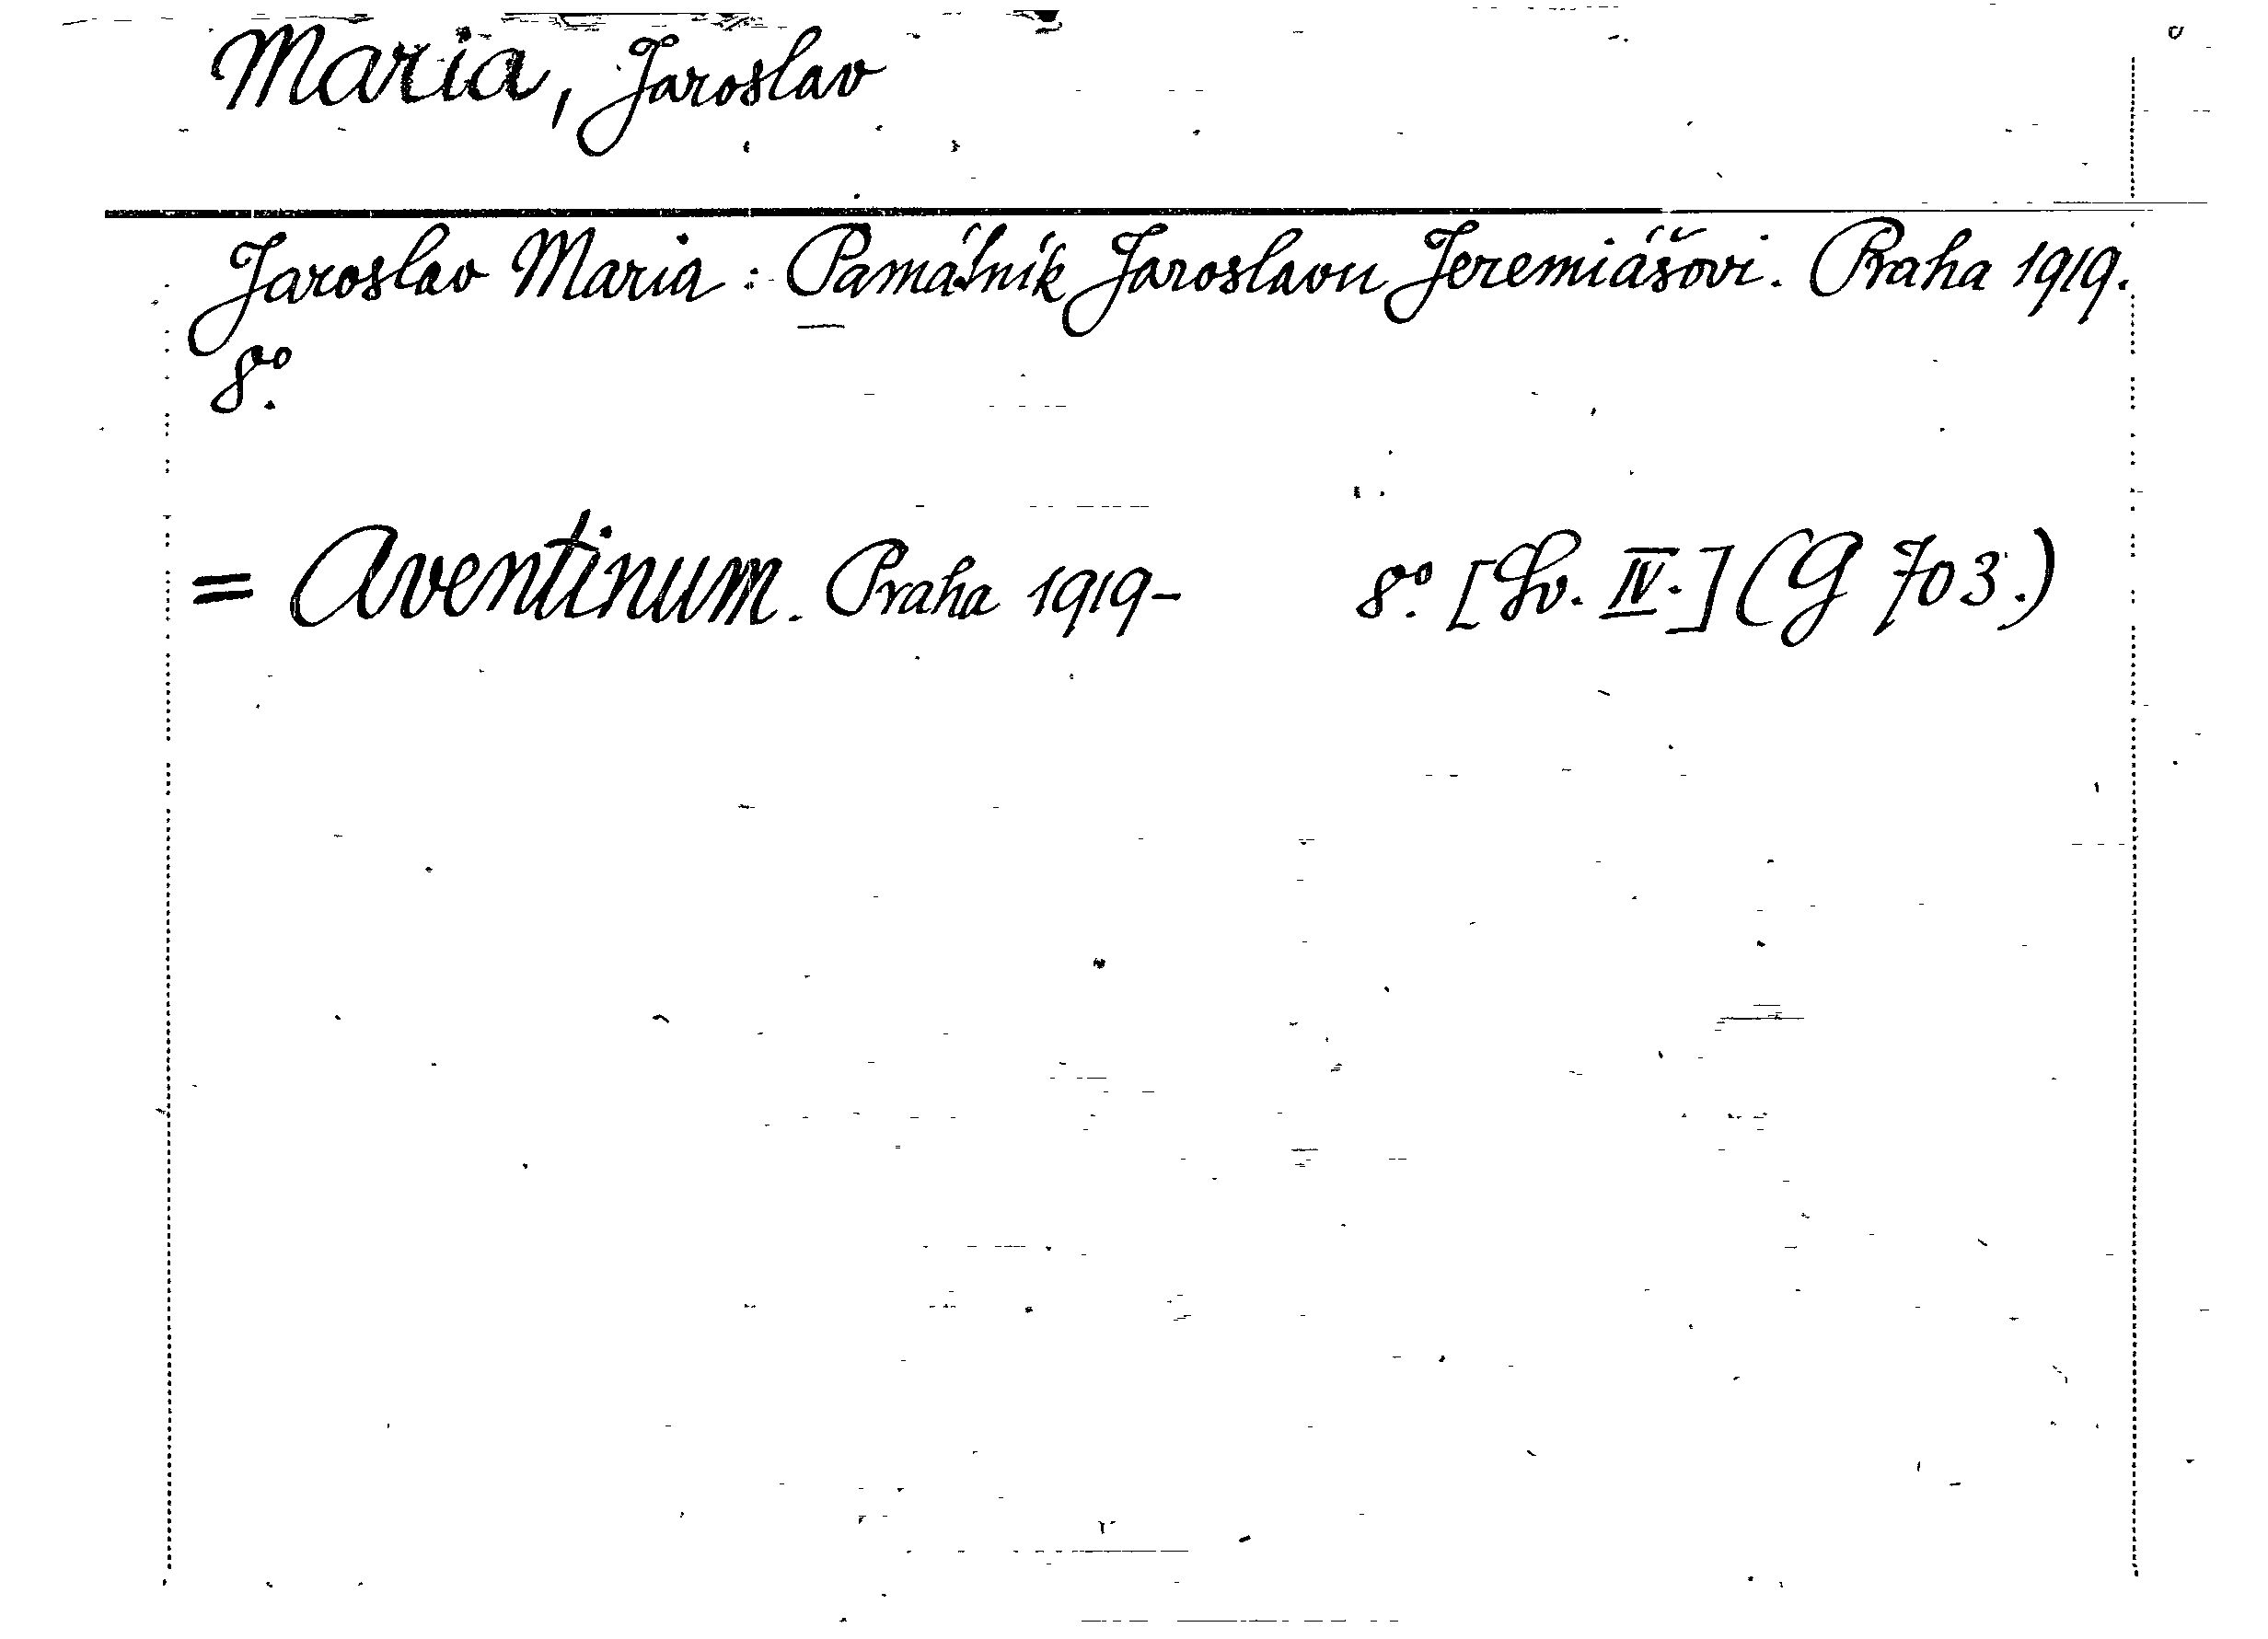 Maria, Jaroslav
Jaroslav Maria: Památník Jaroslavu Jeremiášovi. Praha 1919.
8º.
= Aventinum. Praha 1919- 8º. [Sv. IV.] (G 703.)